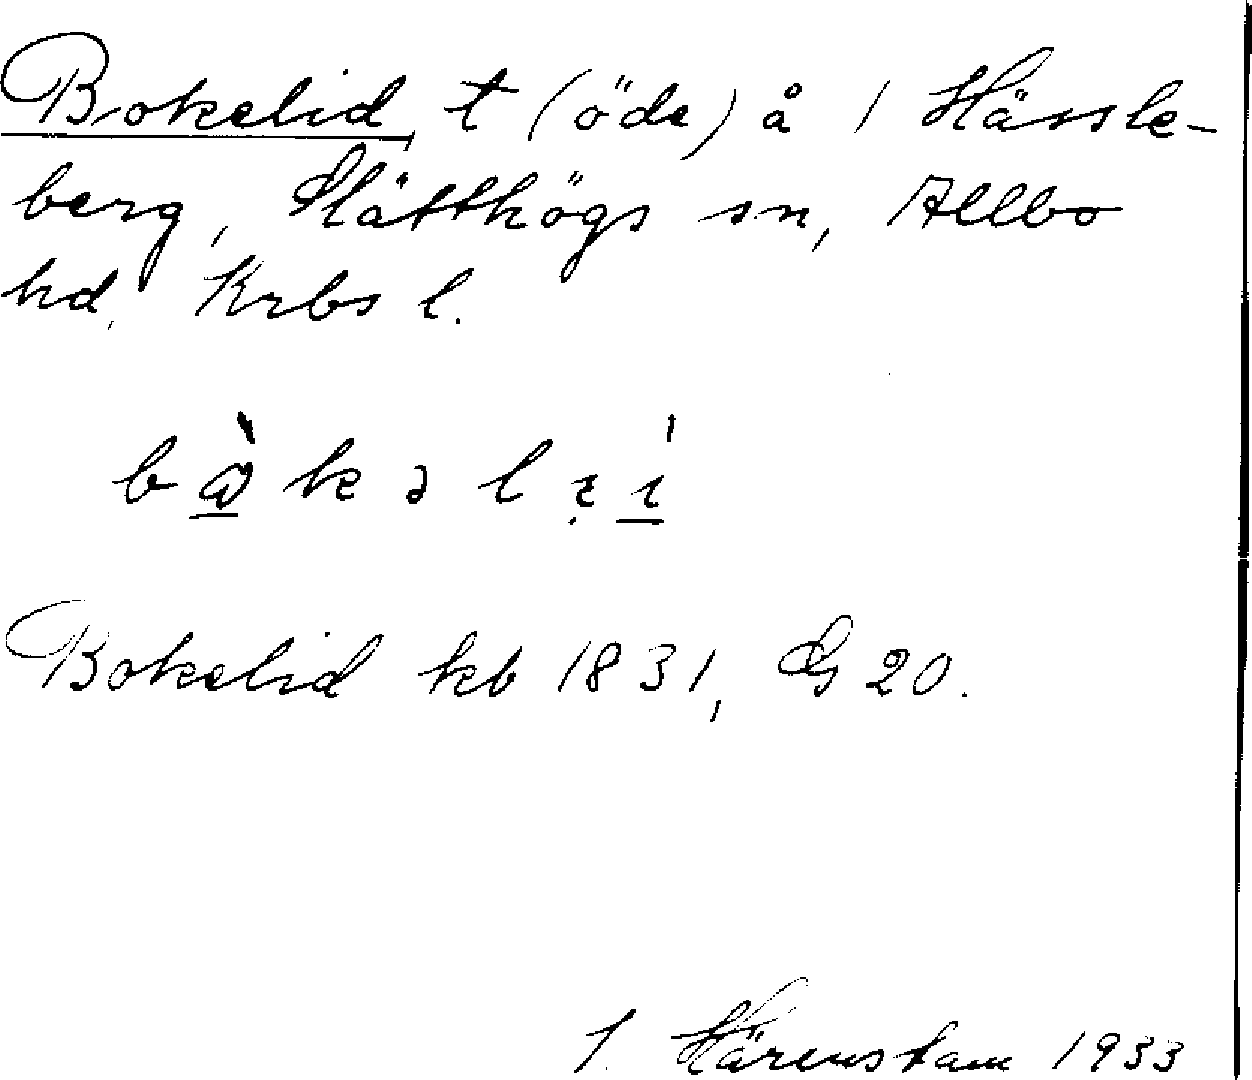 Bokelid, t (öde) å 1 Hässle-
berg, Slätthögs sn, Allbo
hd, Krbs l.
Bokelid kb 1831, G 20.
Härenstam 1933